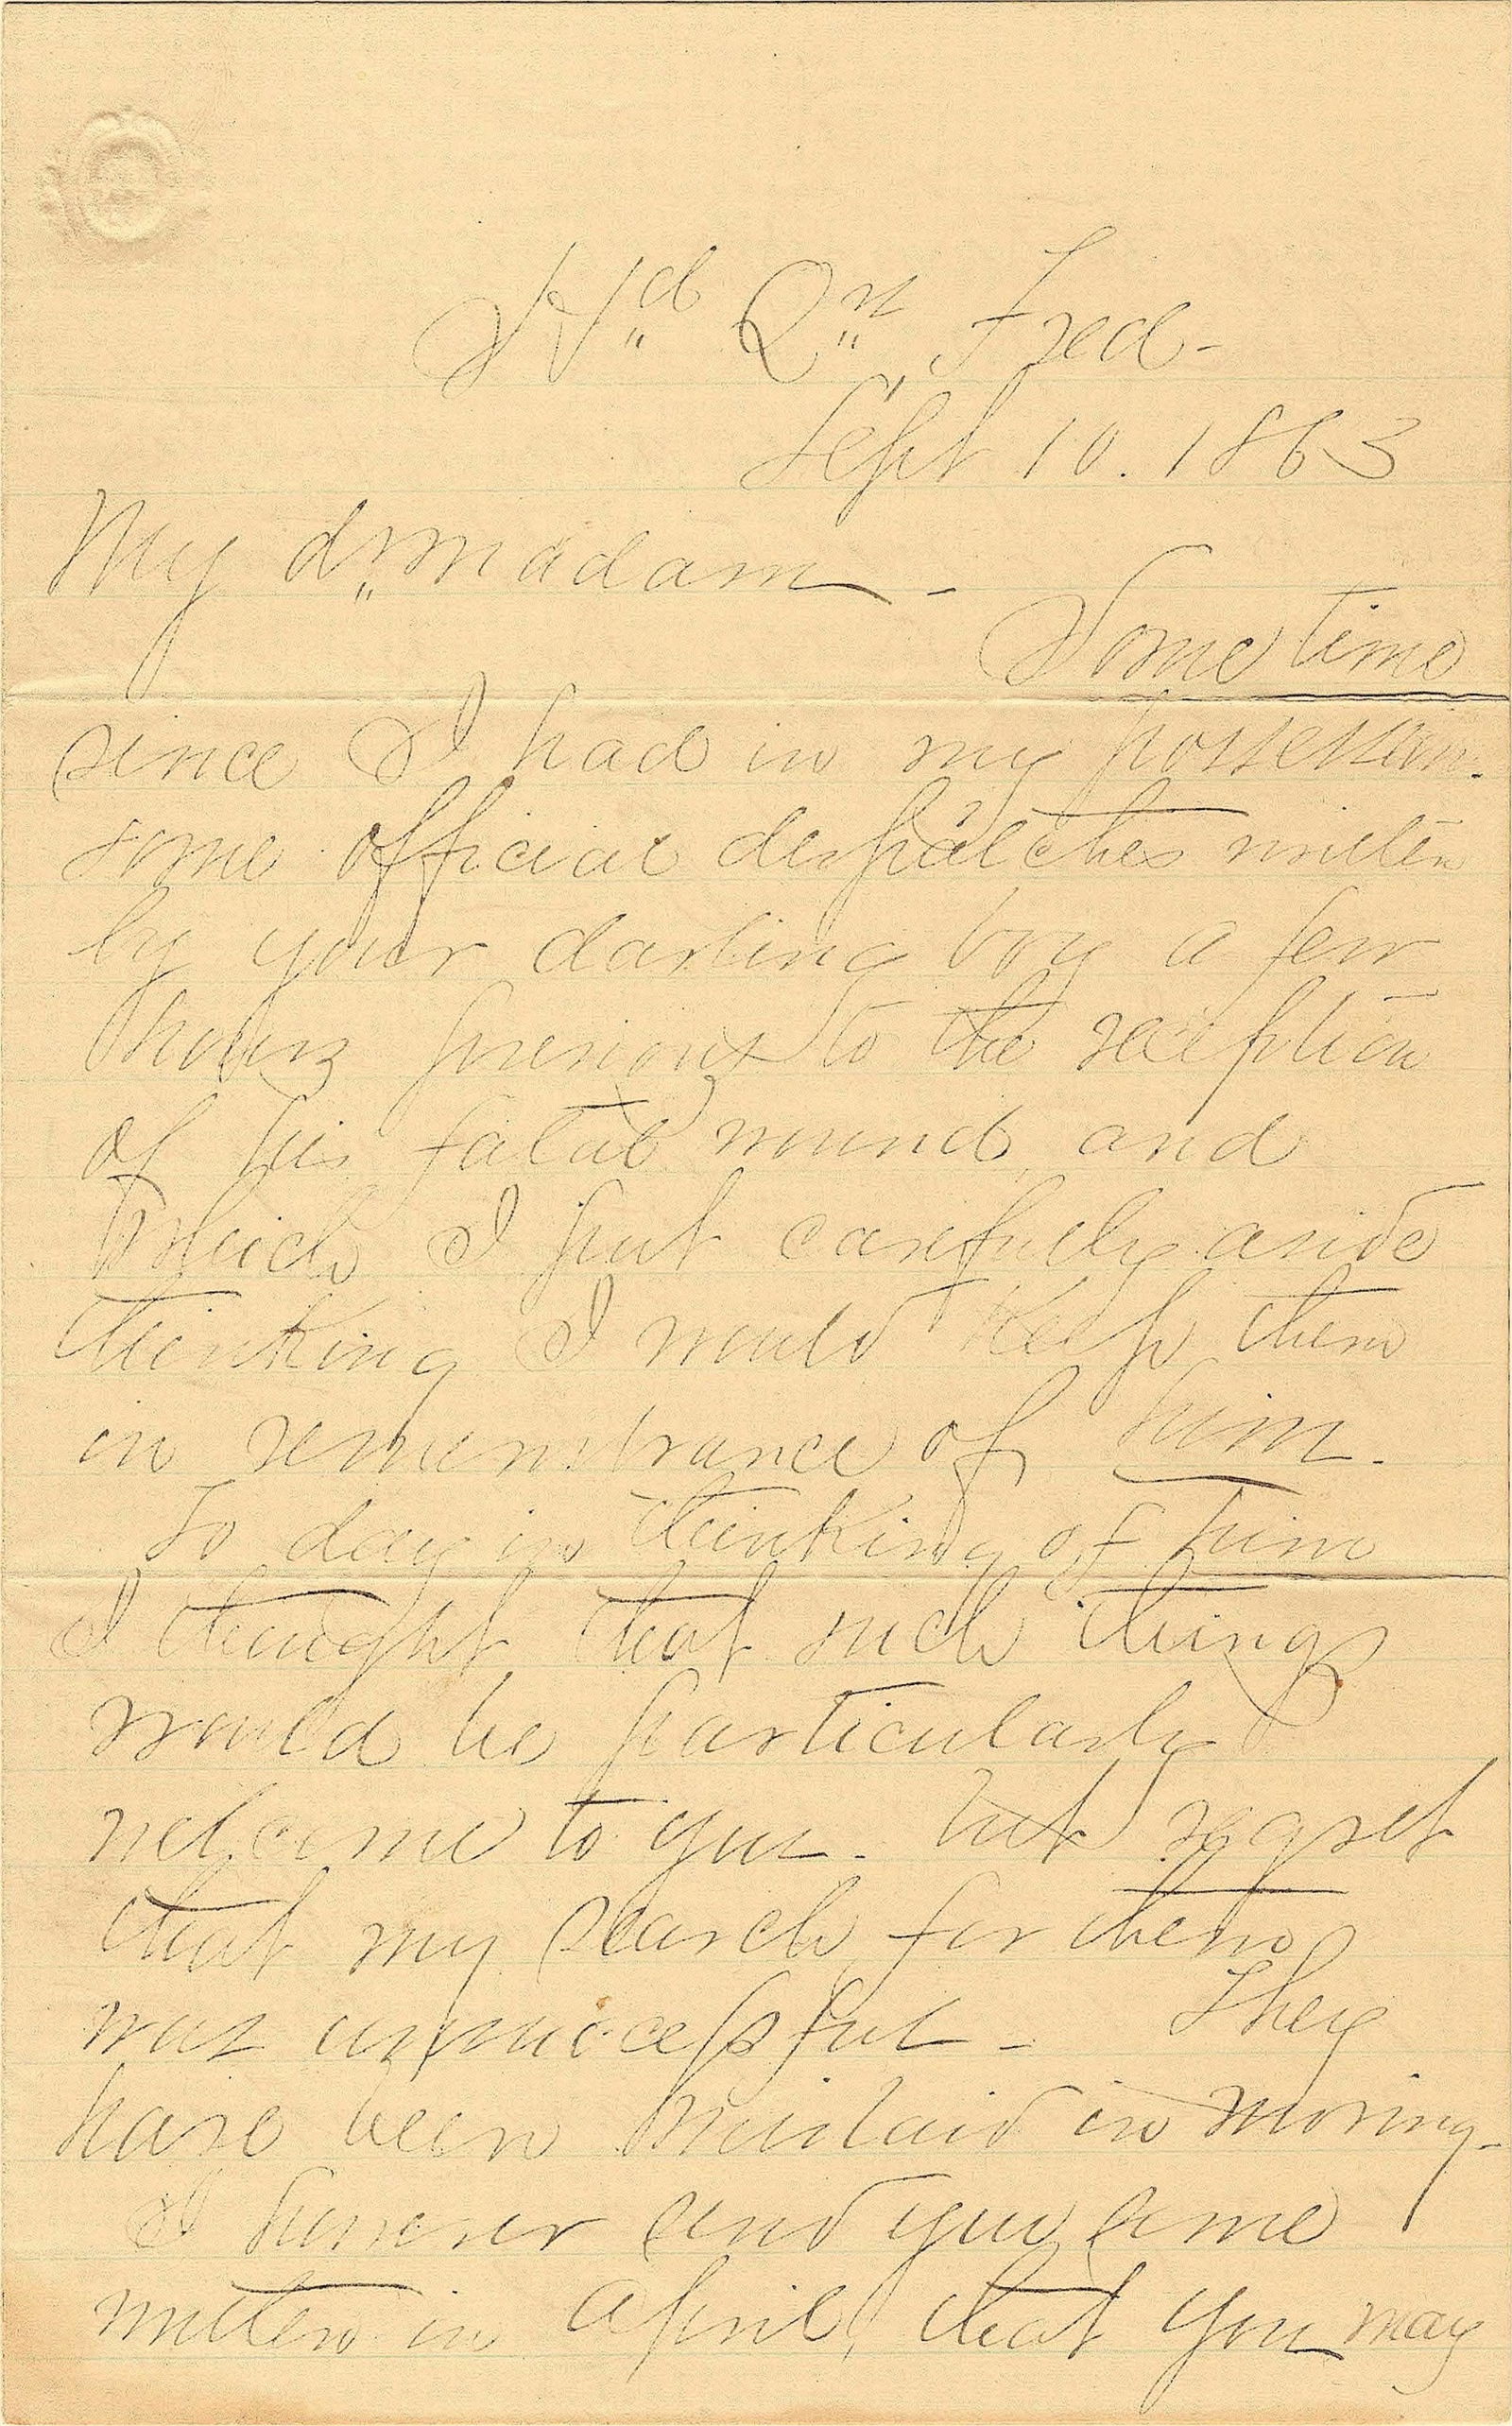 Hd Qrs Fred-
Sept 10. 1863
My dr madam -
Some time
since I had in my possession.
some official despatches written
by your darling boy a few
hours previous to the reception
of his fatal wound, and
which I put carefully aside
thinking I would keep them
in remembrance of him.
To day in thinking of him
I thought that such things
would be particularly
welcome to you - but regret
that my search for them
was unsuccessful - They
have been mislaid in moving -
I however send you some
written in April, that you may